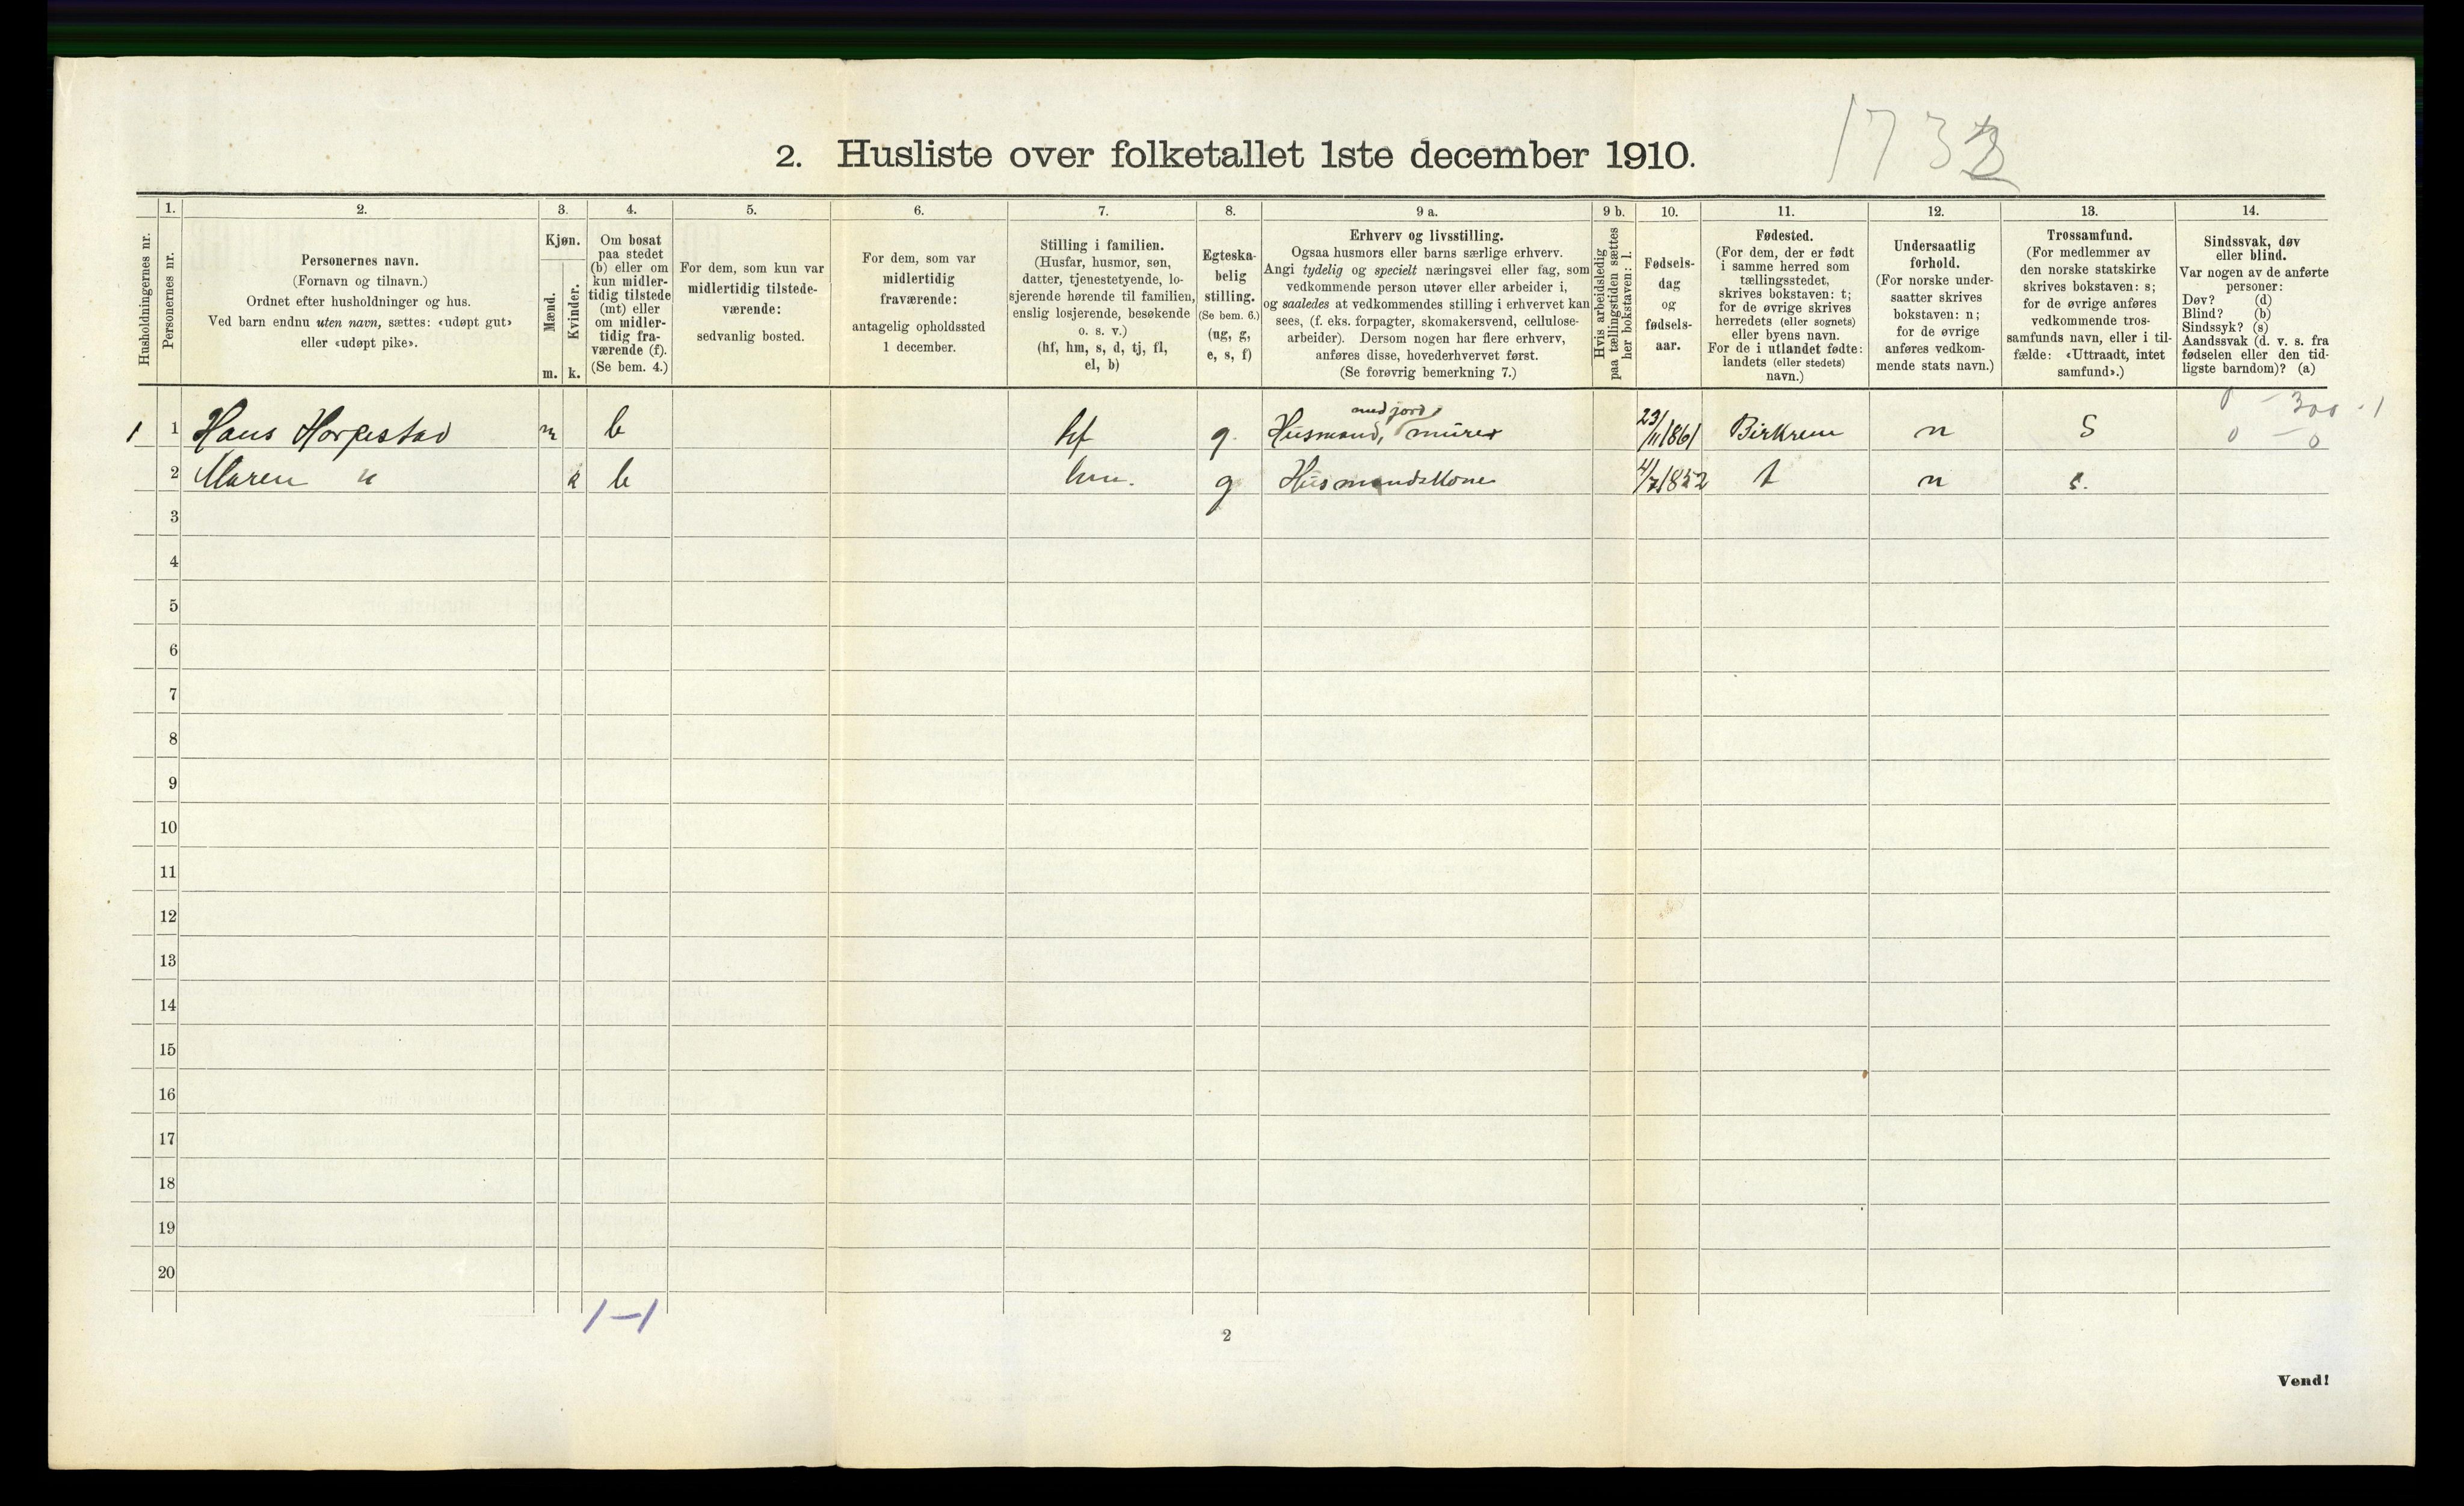 2. Husliste over folketallet 1ste december 1910.
Husholdningernes nr.
1. Personernes nr.
2. Personernes navn.
(Fornavn og tilnavn.)
Ordnet efter husholdninger og hus.
Ved barn endnu uten navn, sættes: «udøpt gut»
eller «udøpt pike».
3. Kjøn.
Mænd. m.
Kvinder. k.
4. Om bosat
paa stedet
(b) eller om
kun midler-
tidig tilstede
(mt) eller
om midler-
tidig fra-
værende (f).
(Se bem. 4.)
5. For dem, som kun var
midlertidig tilstede-
værende:
sedvanlig bosted.
6. For dem, som var
midlertidig
fraværende:
antagelig opholdssted
1 december.
7. Stilling i familien.
(Husfar, husmor, søn,
datter, tjenestetyende, lo-
sjerende hørende til familien,
enslig losjerende, besøkende
o. s. v.)
(hf, hm, s, d, tj, fl,
el, b)
8. Egteska-
belig
stilling.
(Se bem. 6.)
(ug, g,
e, s, f)
9 a. Erhverv og livsstilling.
Ogsaa husmors eller barns særlige erhverv.
Angi tydelig og specielt næringsvei eller fag, som
vedkommende person utøver eller arbeider i,
og saaledes at vedkommendes stilling i erhvervet kan
sees, (f. eks. forpagter, skomakersvend, cellulose-
arbeider). Dersom nogen har flere erhverv,
anføres disse, hovederhvervet først.
(Se forøvrig bemerkning 7.)
9 b. Hvis arbeidsledig
paa tællingstiden sættes
her bokstaven: l.
10. Fødsels-
dag
og
fødsels-
aar.
11. Fødested.
(For dem, der er født
i samme herred som
tællingsstedet,
skrives bokstaven: t;
for de øvrige skrives
herredets (eller sognets)
eller byens navn.
For de i utlandet fødte:
landets (eller stedets)
navn.)
12. Undersaatlig
forhold.
(For norske under-
saatter skrives
bokstaven: n;
for de øvrige
anføres vedkom-
mende stats navn.)
13. Trossamfund.
(For medlemmer av
den norske statskirke
skrives bokstaven: s;
for de øvrige anføres
vedkommende tros-
samfunds navn, eller i til-
fælde: «Uttraadt, intet
samfund».)
14. Sindssvak, døv
eller blind.
Var nogen av de anførte
personer:
Døv? (d)
Blind? (b)
Sindssyk? (s)
Aandssvak (d. v. s. fra
fødselen eller den tid-
ligste barndom)? (a)
0 - 300 . 1
1 1 Hans Horpestad m b hf g. Husmand, med jord, murer 23/11 1861 Birkrem n S 0 - 0
2 Maren " k b hm. g Husmandskone 4/7 1852 t n s.
3
4
5
6
7
8
9
10
11
12
13
14
15
16
17
18
19
20
1-1
2
Vend!